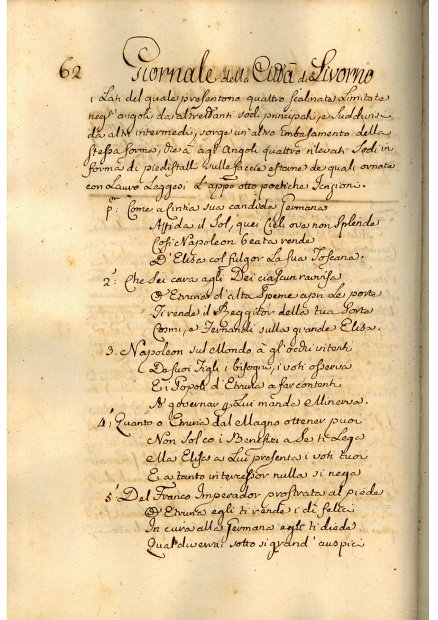 62 Giornale della Città di Livorno
i Lati del quale presentono quattro scalinate Limitate
negl' angoli da altrettanti sodi principali, e suddivise
da altri intermedi, sorge un'altro imbasamento della
stessa forma, che à agl' Angoli quattro rilevati Sodi in
forma di piedistalli sulle faccie esterne de quali ornate
con Lauro Leggesi L'appo otto poetiche Inzioni.
p.a Come a Cintia sua candida Germana
Affida il Sol, quei Cieli ove non Splende
Così Napoleon beata rende
D'Elisa col fulgor La sua Toscana.
2.a Che Sei cara agli Dei ciascun ravvisa
O Etruria d'alta Speme apri Le porte
Ti rende il Reggitor della tua Sorte
Cosmi, e Fernandi sulla grande Elisa.
3. Napoleon sul Mondo à gl'occhi intenti
De suoi Figli i bisogni, i voti osserva
E i Popoli d'Etruria a far contenti
A governar p. Lui manda Minerva.
4.a Quanto o Etruria dal Magno ottener puoi
Non Sol co i Benefici a Se ti Lega
Ma Elisa a Lui presenta i voti tuoi
E a tanto intercessor nulla si nega
5.a Del Franco Imperador prostrata al piede
O Etruria egli ti rende i dì felici
In cura alla Germana egli ti diede
Qual diverrai sotto sì grand' auspici